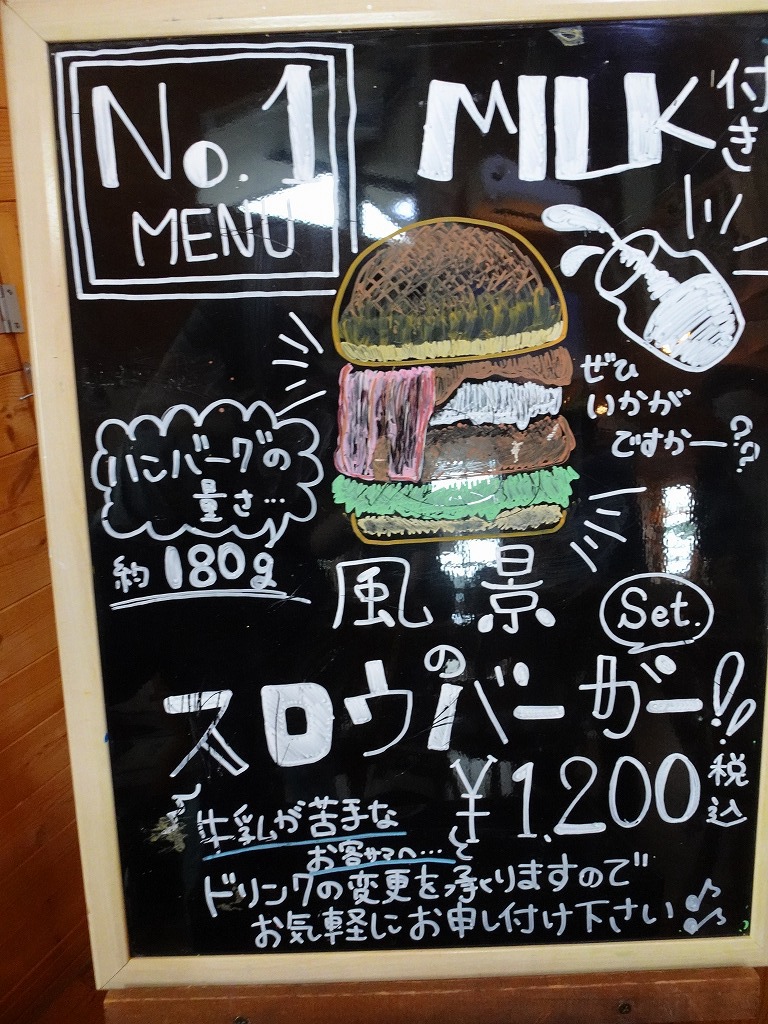 No.1
MENU
MILK付き
ぜひ
いかが
ですかー??
ハンバーグの
量さ…
約180g
風景
の
Set.
スロウバーガー!!
¥1.200税込
牛乳が苦手な
お客サマへ…
ドリンクの変更を承りますので
お気軽にお申し付け下さい♪♪